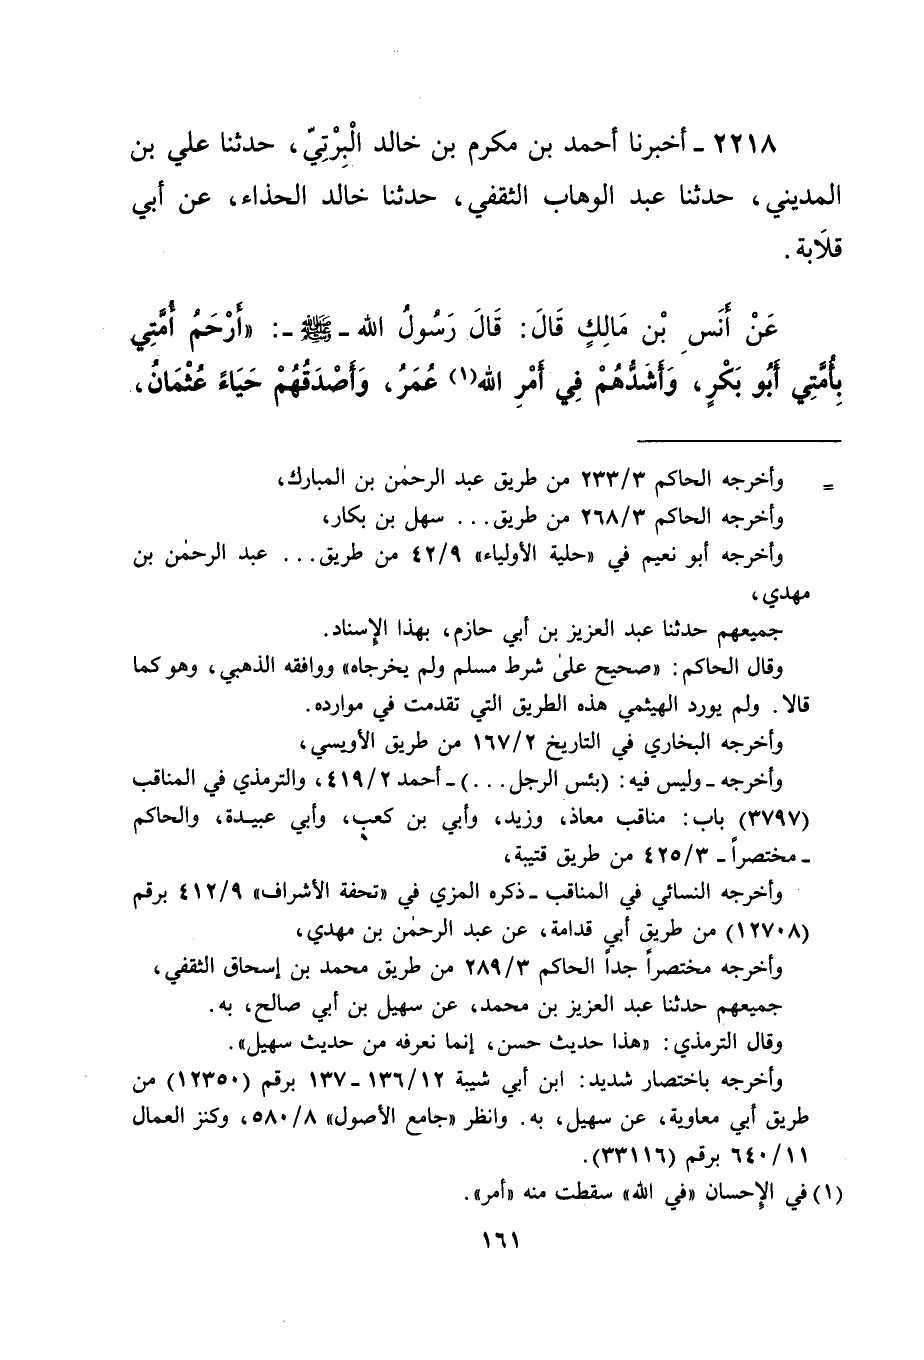 ٢٢١٨ ـ أخبرنا أحمد بن مكرم بن خالد الْبِرْتِيّ، حدثنا علي بن
المديني، حدثنا عبد الوهاب الثقفي، حدثنا خالد الحذاء، عن أبي
قلَابة.
عَنْ أَنَسِ بْنِ مَالِكٍ قَالَ: قَالَ رَسُولُ الله ـ ﷺ ـ: «أَرْحَمُ أُمَّتِي
بِأُمَّتِي أَبُو بَكْرٍ، وَأَشَدُّهُمْ فِي أَمْرِ الله(١) عُمَرُ، وَأَصْدَقُهُمْ حَيَاءً عُثْمَانُ،
= وأخرجه الحاكم ٢٣٣/٣ من طريق عبد الرحمٰن بن المبارك،
وأخرجه الحاكم ٢٦٨/٣ من طريق... سهل بن بكار،
وأخرجه أبو نعيم في «حلية الأولياء» ٤٢/٩ من طريق... عبد الرحمٰن بن
مهدي،
جميعهم حدثنا عبد العزيز بن أبي حازم، بهذا الإسناد.
وقال الحاكم: «صحيح علىٰ شرط مسلم ولم يخرجاه» ووافقه الذهبي، وهو كما
قالا. ولم يورد الهيثمي هذه الطريق التي تقدمت في موارده.
وأخرجه البخاري في التاريخ ١٦٧/٢ من طريق الأويسي،
وأخرجه ـ وليس فيه: (بئس الرجل...) ـ أحمد ٤١٩/٢، والترمذي في المناقب
(٣٧٩٧) باب: مناقب معاذ، وزيد، وأبي بن كعب، وأبي عبيدة، والحاكم
ـ مختصراً ـ ٤٢٥/٣ من طريق قتيبة،
وأخرجه النسائي في المناقب ـ ذكره المزي في «تحفة الأشراف» ٤١٢/٩ برقم
(١٢٧٠٨) من طريق أبي قدامة، عن عبد الرحمٰن بن مهدي،
وأخرجه مختصراً جداً الحاكم ٢٨٩/٣ من طريق محمد بن إسحاق الثقفي،
جميعهم حدثنا عبد العزيز بن محمد، عن سهيل بن أبي صالح، به.
وقال الترمذي: «هذا حديث حسن، إنما نعرفه من حديث سهيل».
وأخرجه باختصار شديد: ابن أبي شيبة ١٣٦/١٢ ـ ١٣٧ برقم (١٢٣٥٠) من
طريق أبي معاوية، عن سهيل، به. وانظر «جامع الأصول» ٥٨٠/٨، وكنز العمال
٦٤٠/١١ برقم (٣٣١١٦).
(١) في الإحسان «في الله» سقطت منه «أمر».
١٦١